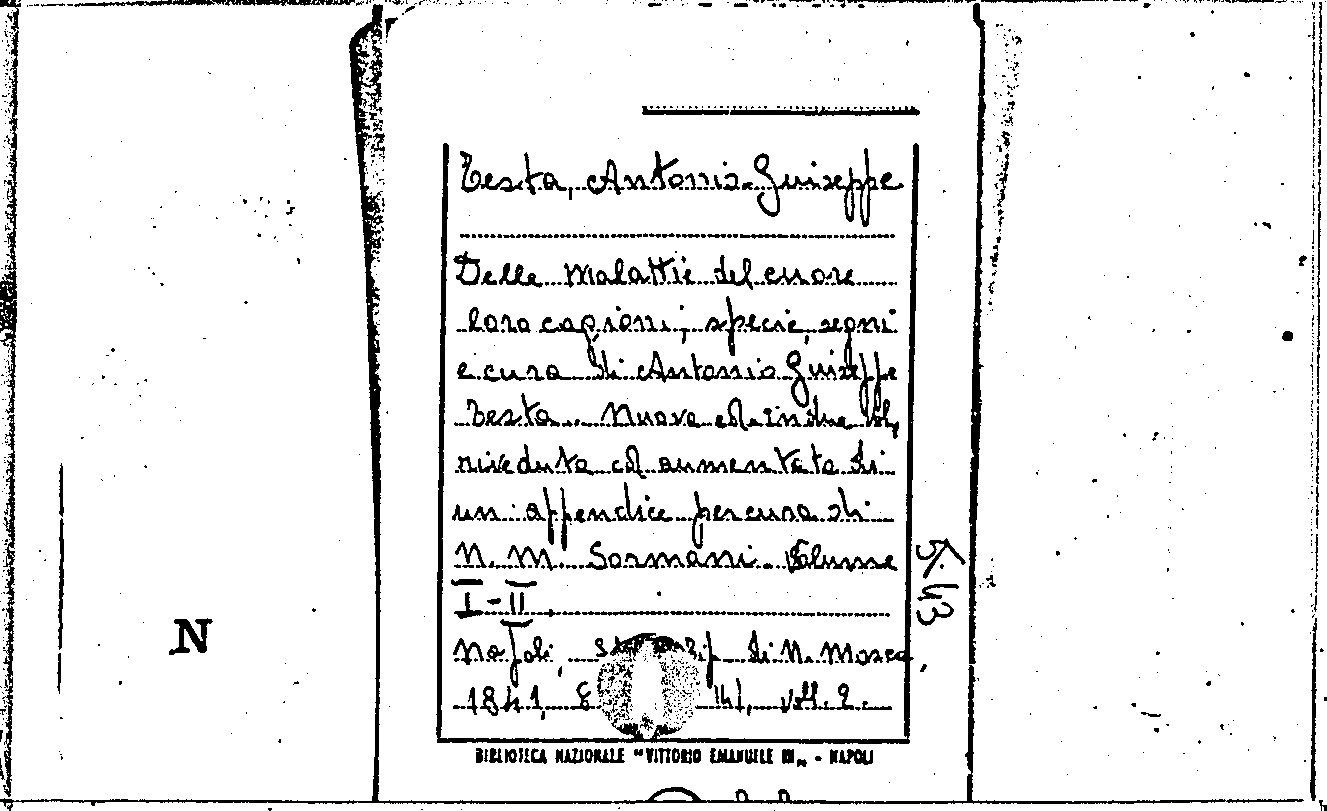 Testa, Antonio Giuseppe
Delle Malattie del cuore
loro cagioni, specie, segni
e cura di Antonio Giuseppe
Testa. Nuova ed. in due vol.
riveduta ed aumentata di
un appendice per cura di
N. M. Sormani. Volume
I-II.
Napoli, di N. Mosca,
1841, 8 voll. 2.
5.43
N
BIBLIOTECA NAZIONALE "VITTORIO EMANUELE III„ - NAPOLI